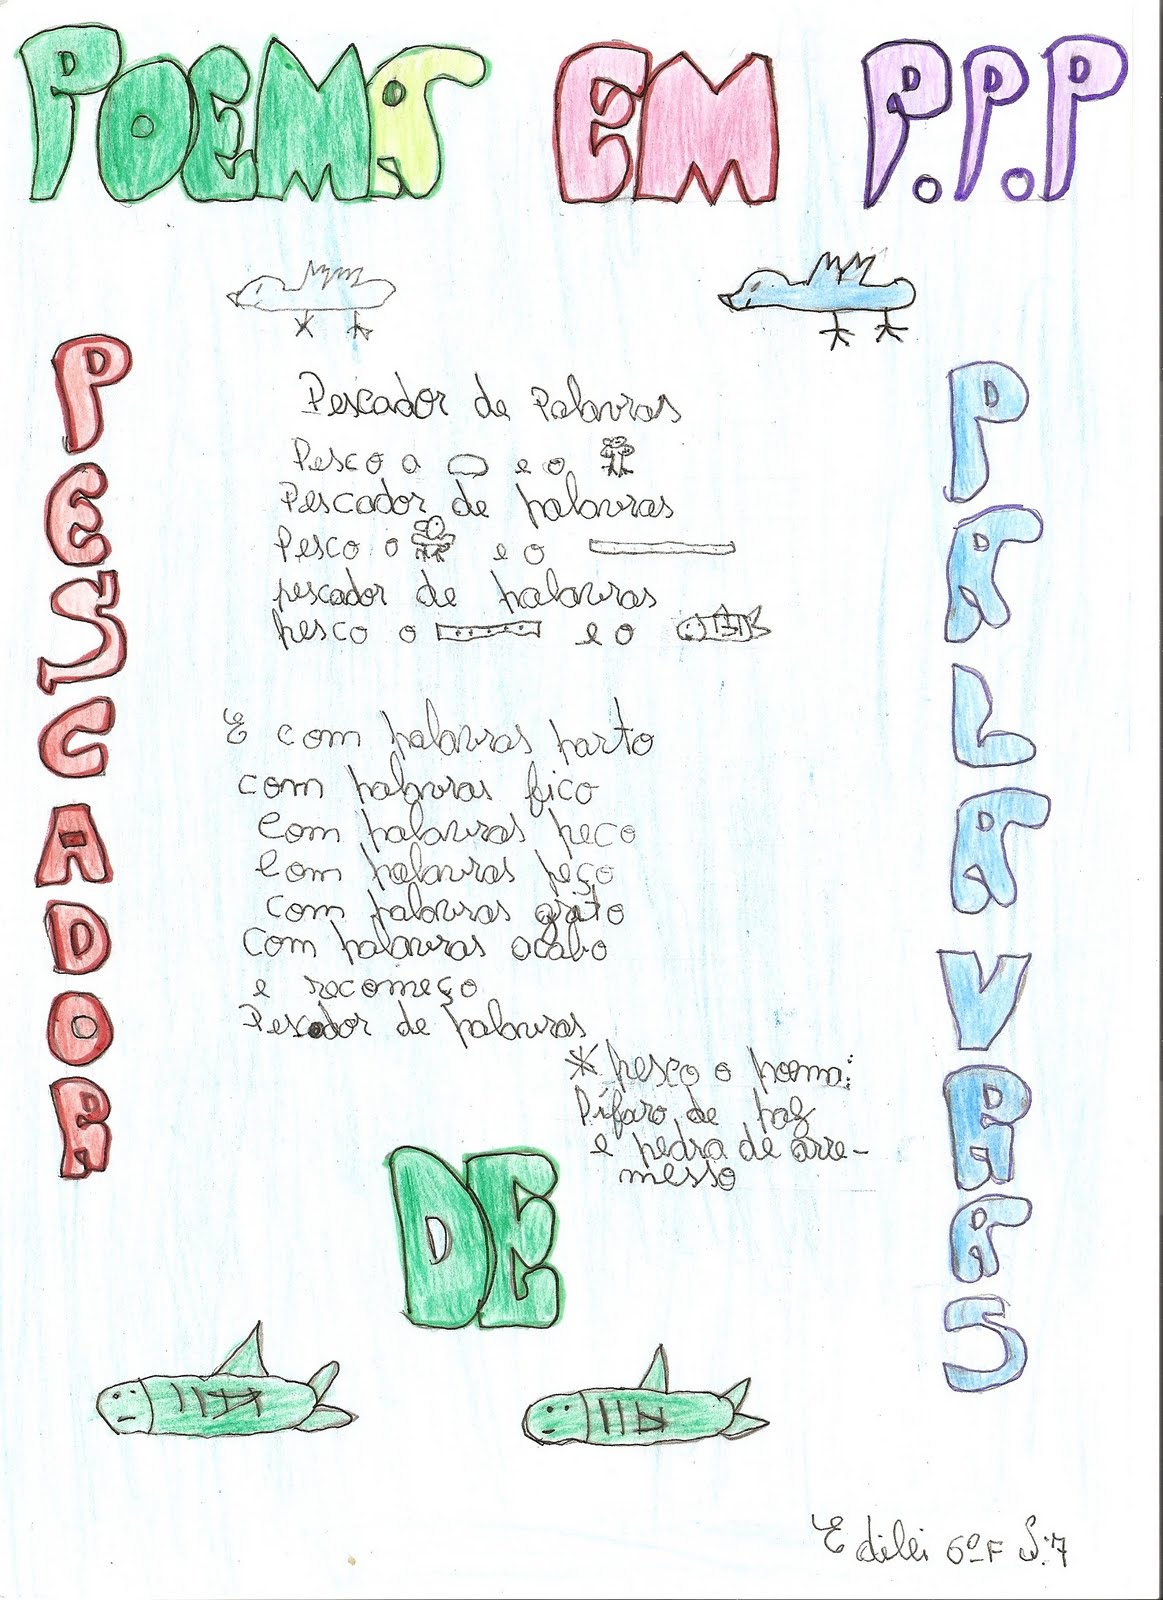 POEMA EM P.P.P
PESCADOR
Pescador de Palavras
Pesco a e o
Pescador de palavras
Pesco o e o
pescador de palavras
pesco o e o
E com palavras parto
com palavras fico
Com palavras peco
Com palavras peço
com palavras grito
Com palavras acabo
e recomeço
Pescador de palavras
* pesco o poema:
Pífaro de paz
e pedra de arre-
messo
DE
PALAVRAS
Edilei 6º F S:7